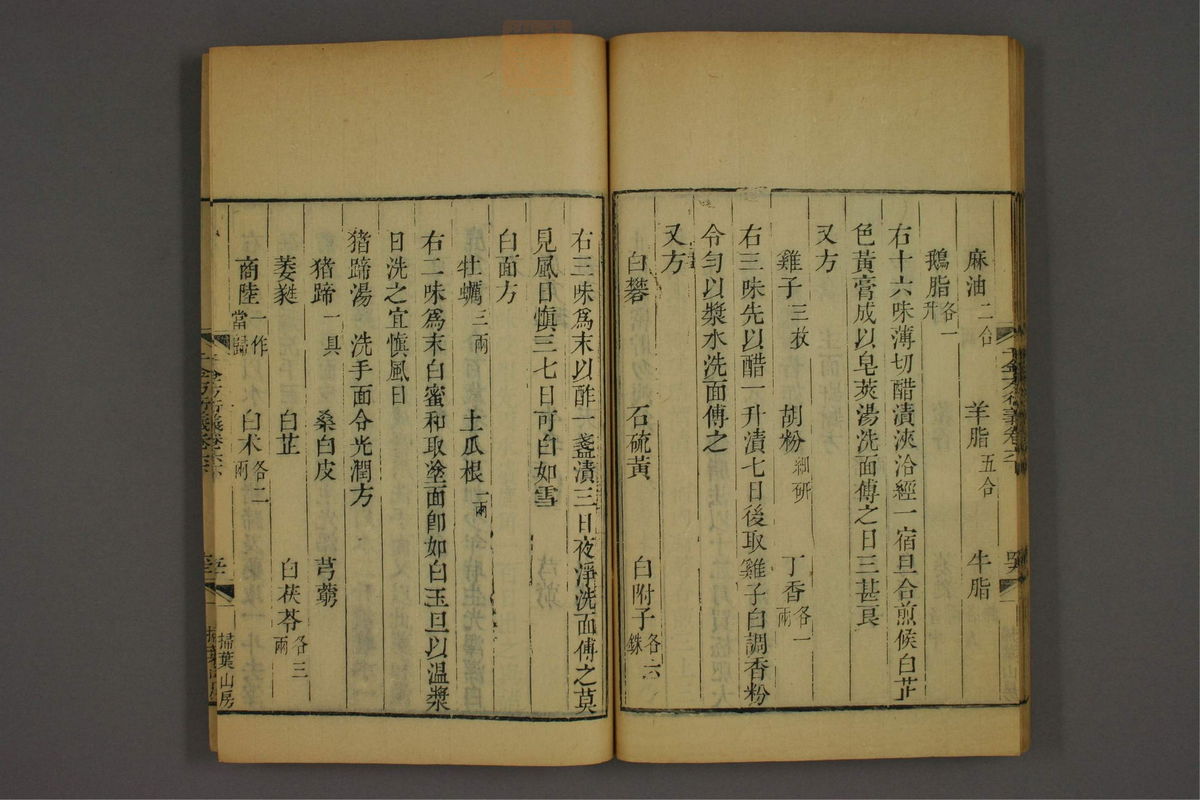 麻油二合 羊脂五合 牛脂
鵝脂各一升
右十六味薄切醋漬浹洽經一宿旦合煎候白芷
色黃膏成以皂莢湯洗面傅之日三甚良
又方
雞子三枚 胡粉細研 丁香各一兩
右三味先以醋一升漬七日後取雞子白調香粉
令勻以漿水洗面傅之
又方
白礬 石硫黃 白附子各六銖
右三味為末以酢一盞漬三日夜淨洗面傅之莫
見風日愼三七日可白如雪
白面方
牡蠣三兩 土瓜根一兩
右二味為末白蜜和取塗面卽如白玉旦以温漿
日洗之宜愼風日
猪蹄湯 洗手面令光潤方
猪蹄一具 桑白皮 芎藭
萎蕤 白芷 白茯苓各三兩
商陸一作當歸 白术各二兩
掃葉山房